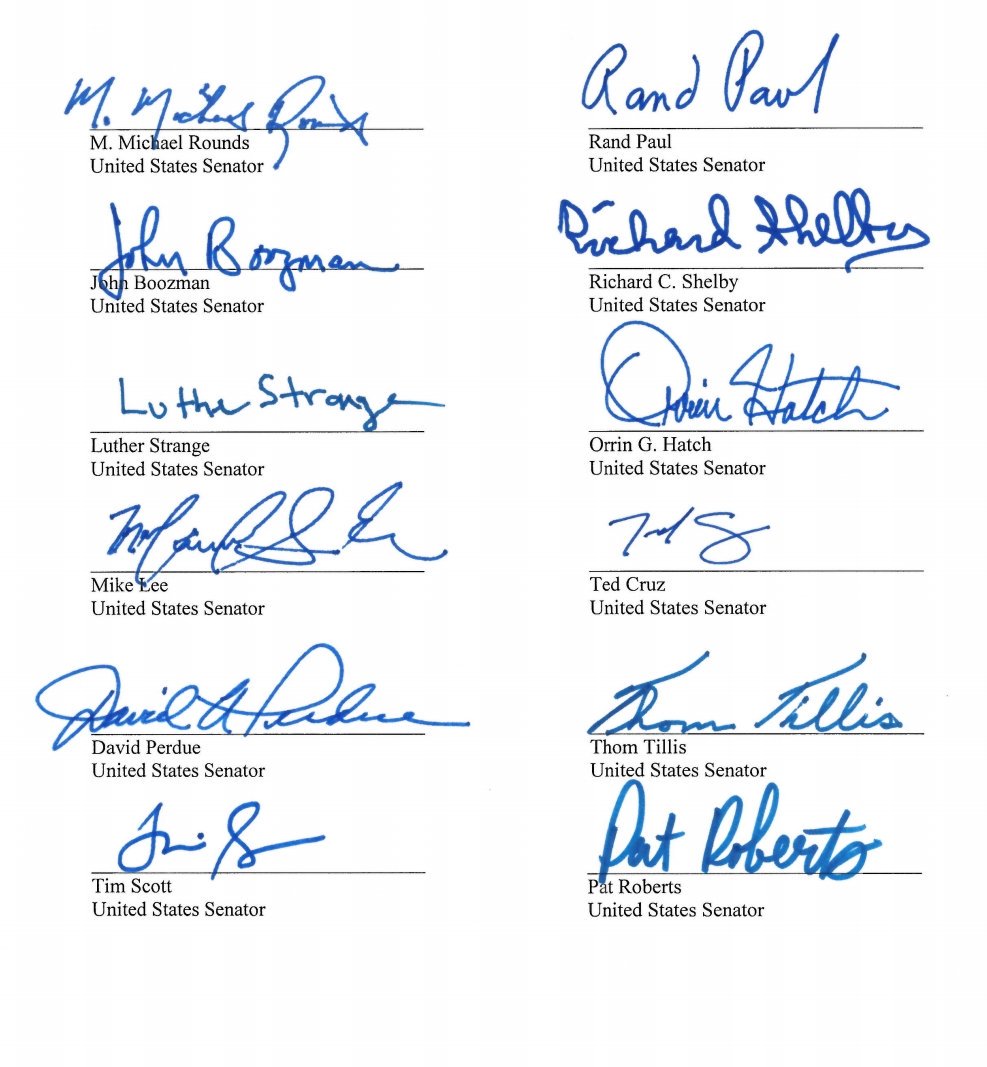 M. Michael Rounds
M. Michael Rounds
United States Senator
Rand Paul
Rand Paul
United States Senator
John Boozman
John Boozman
United States Senator
Richard Shelby
Richard C. Shelby
United States Senator
Luther Strange
Luther Strange
United States Senator
Orrin Hatch
Orrin G. Hatch
United States Senator
Mike Lee
United States Senator
Ted Cruz
United States Senator
David A Perdue
David Perdue
United States Senator
Thom Tillis
Thom Tillis
United States Senator
Tim Scott
United States Senator
Pat Roberts
Pat Roberts
United States Senator